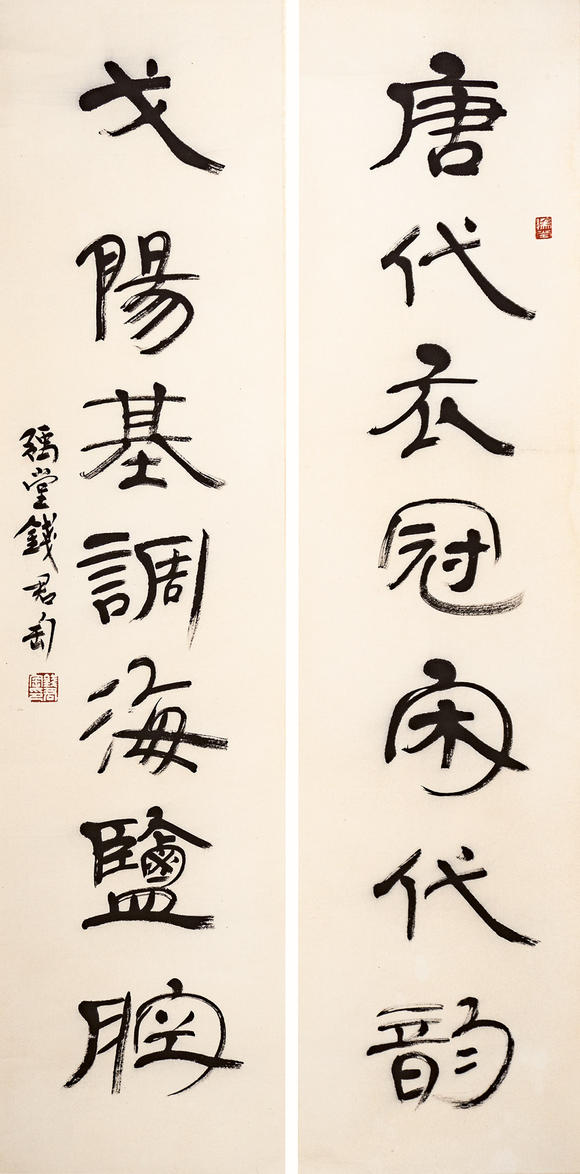 唐代衣冠宋代韵
戈陽基調海鹽腔
堂錢君匋